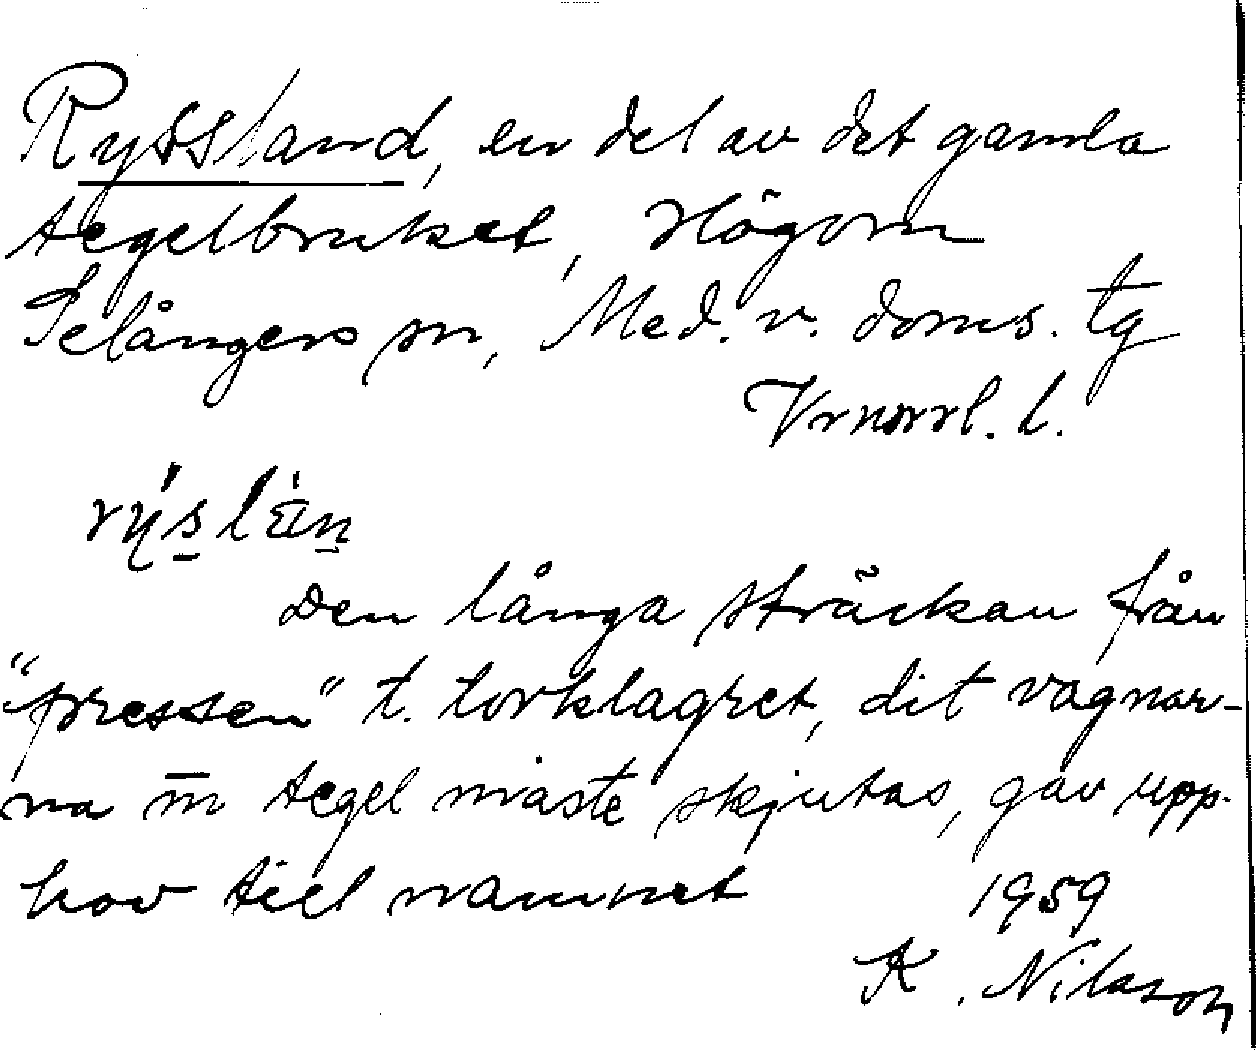 Ryssland, en del av det gamla
tegelbruket, Högom
Selångers sn, Med. v. doms. tg
Vrnorrl. l.
Den långa sträckan från
"pressen" t. torklagret, dit vagnar-
na m̄ tegel måste skjutas, gav upp-
hov till namnet 1959
K. Nilsson